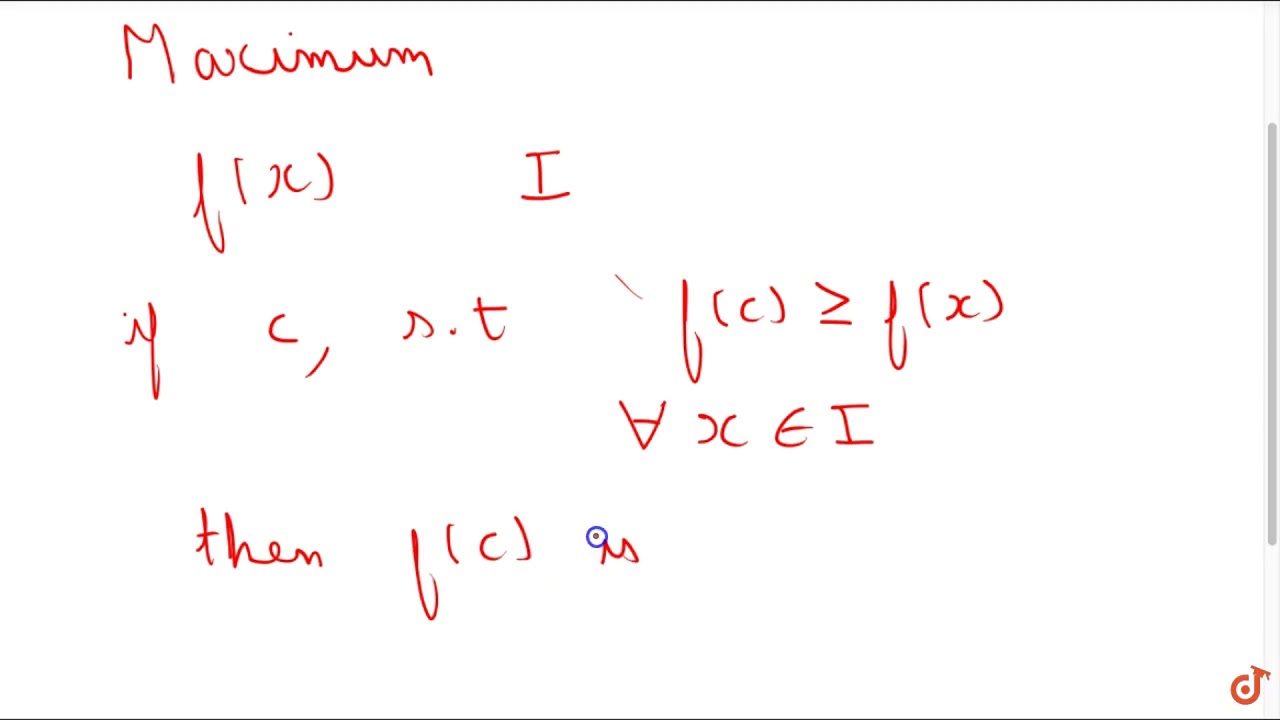 Maximum
f(x) I
if c, s.t f(c) ≥ f(x)
∀ x ∈ I
then f(c) is